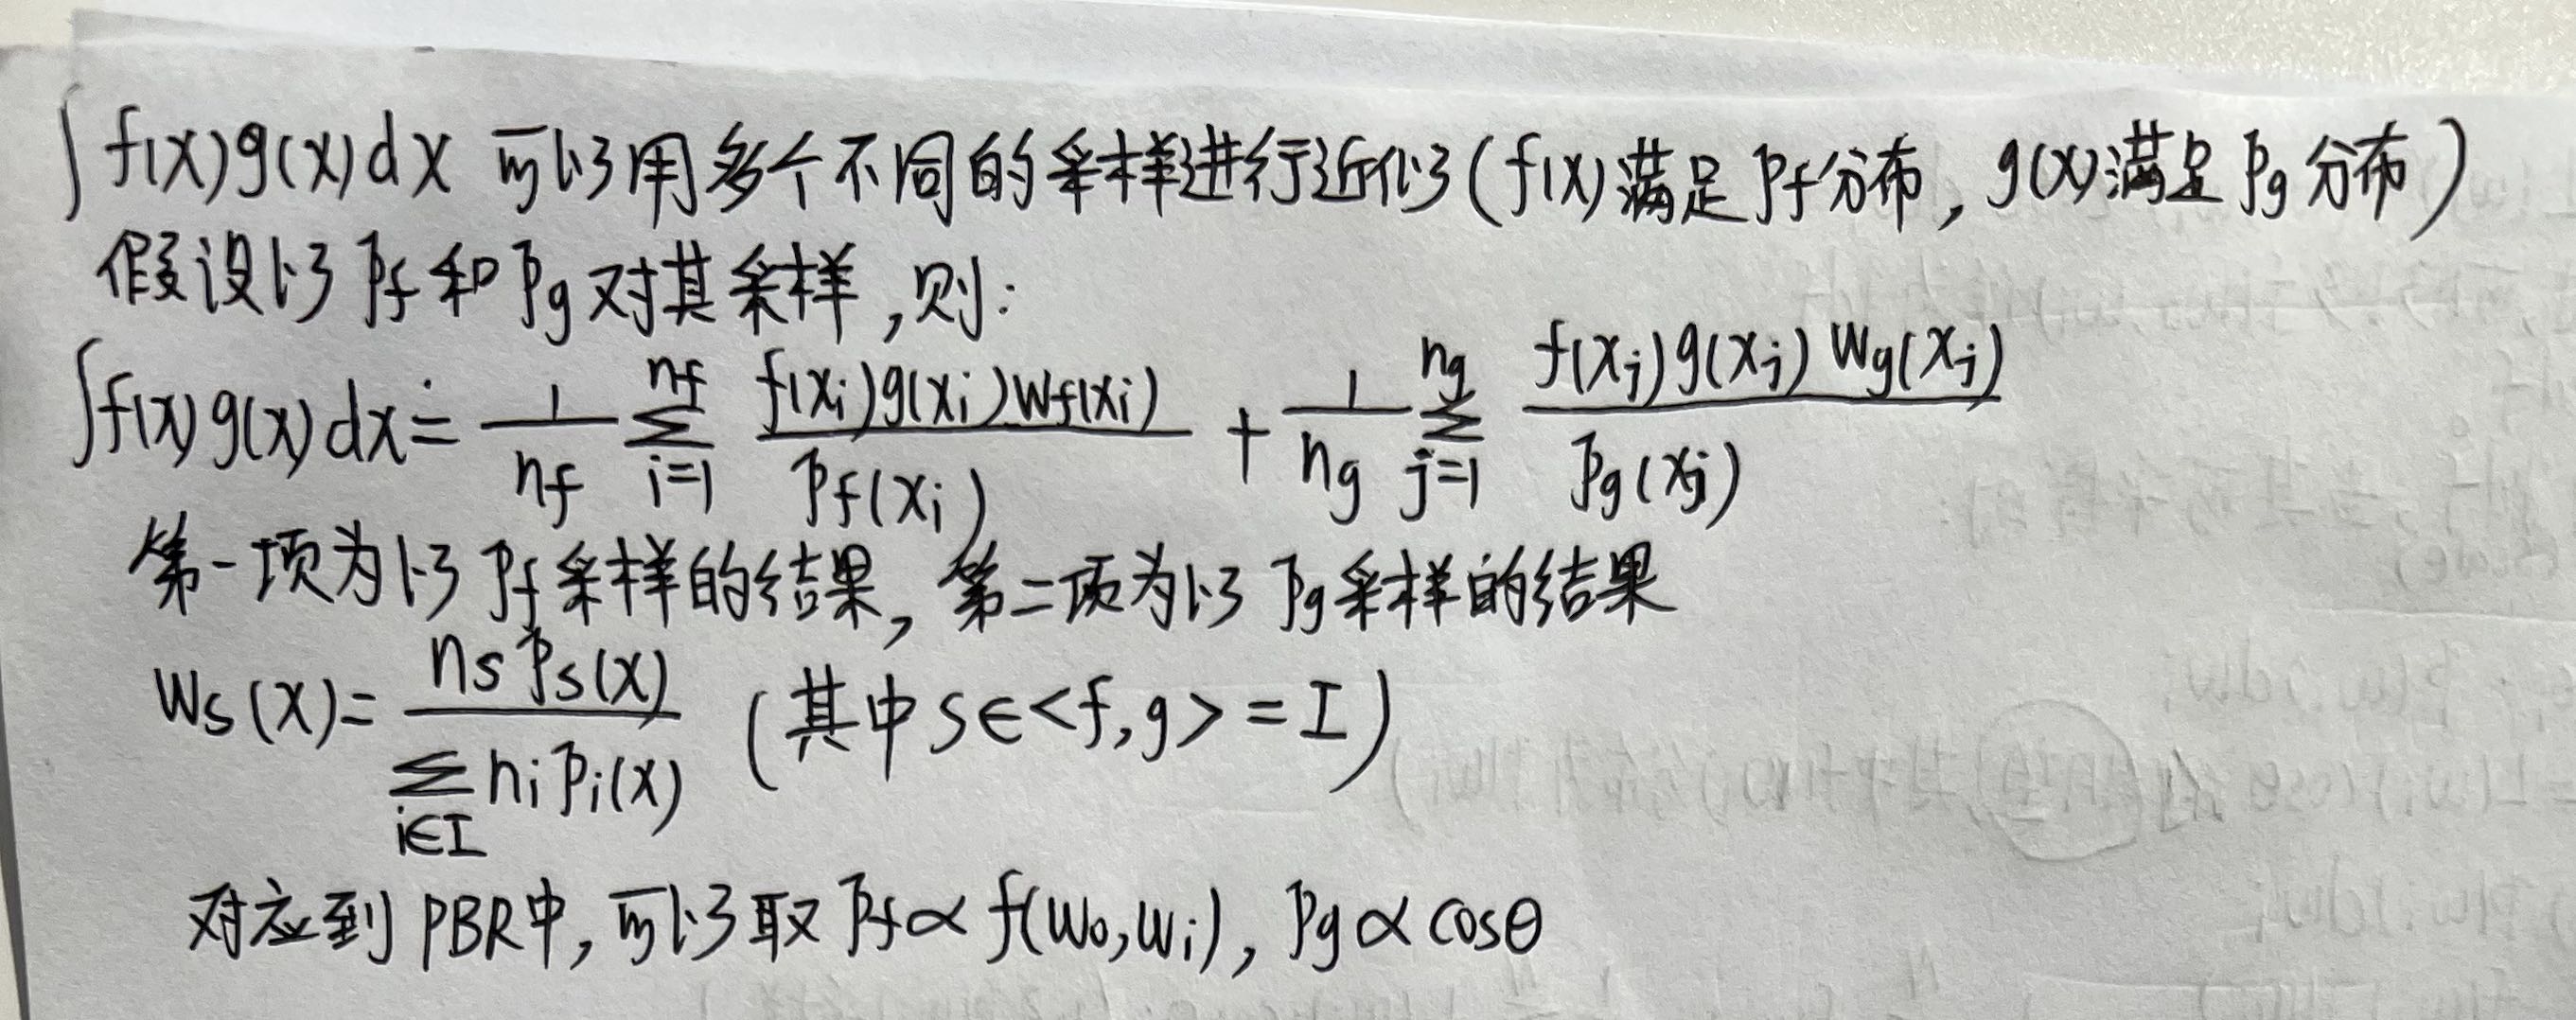 ∫f(x)g(x)dx 可以用多个不同的采样进行近似(f(x)满足Pf分布,g(x)满足Pg分布)
假设以Pf和Pg对其采样,则:
∫f(x)g(x)dx ≐ 1/nf ∑_{i=1}^{nf} f(xi)g(xi)Wf(xi)/Pf(xi) + 1/ng ∑_{j=1}^{ng} f(xj)g(xj)Wg(xj)/Pg(xj)
第一项为以Pf采样的结果,第二项为以Pg采样的结果
Ws(x)= nsPs(x)/∑_{i∈I} niPi(x) (其中s∈<f,g>=I)
对应到PBR中,可以取Pf∝f(wo,wi),Pg∝cosθ